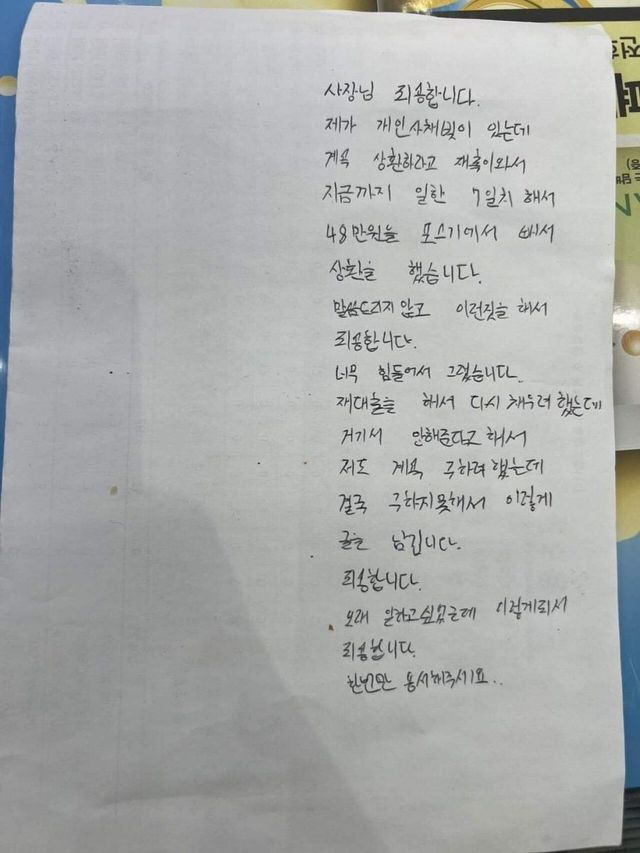 사장님 죄송합니다.
제가 개인사채빚이 있는데
계속 상환하라고 재촉이와서
지금까지 일한 7일치 해서
48만원을 포스기에서 빼서
상환을 했습니다.
말씀드리지않고 이런짓을 해서
죄송합니다.
너무 힘들어서 그랬습니다.
재대출을 해서 다시 채우려 했는데
거기서 안해준다고 해서
저도 계속 구하려 했는데
결국 구하지못해서 이렇게
글을 남깁니다.
죄송합니다.
오래 일하고싶었는데 이렇게되서
죄송합니다.
한번만 용서해주세요..